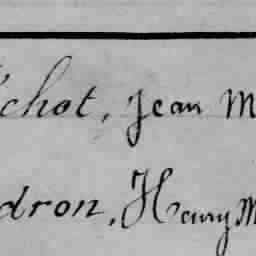 chot, Jean M
dron, Henry M